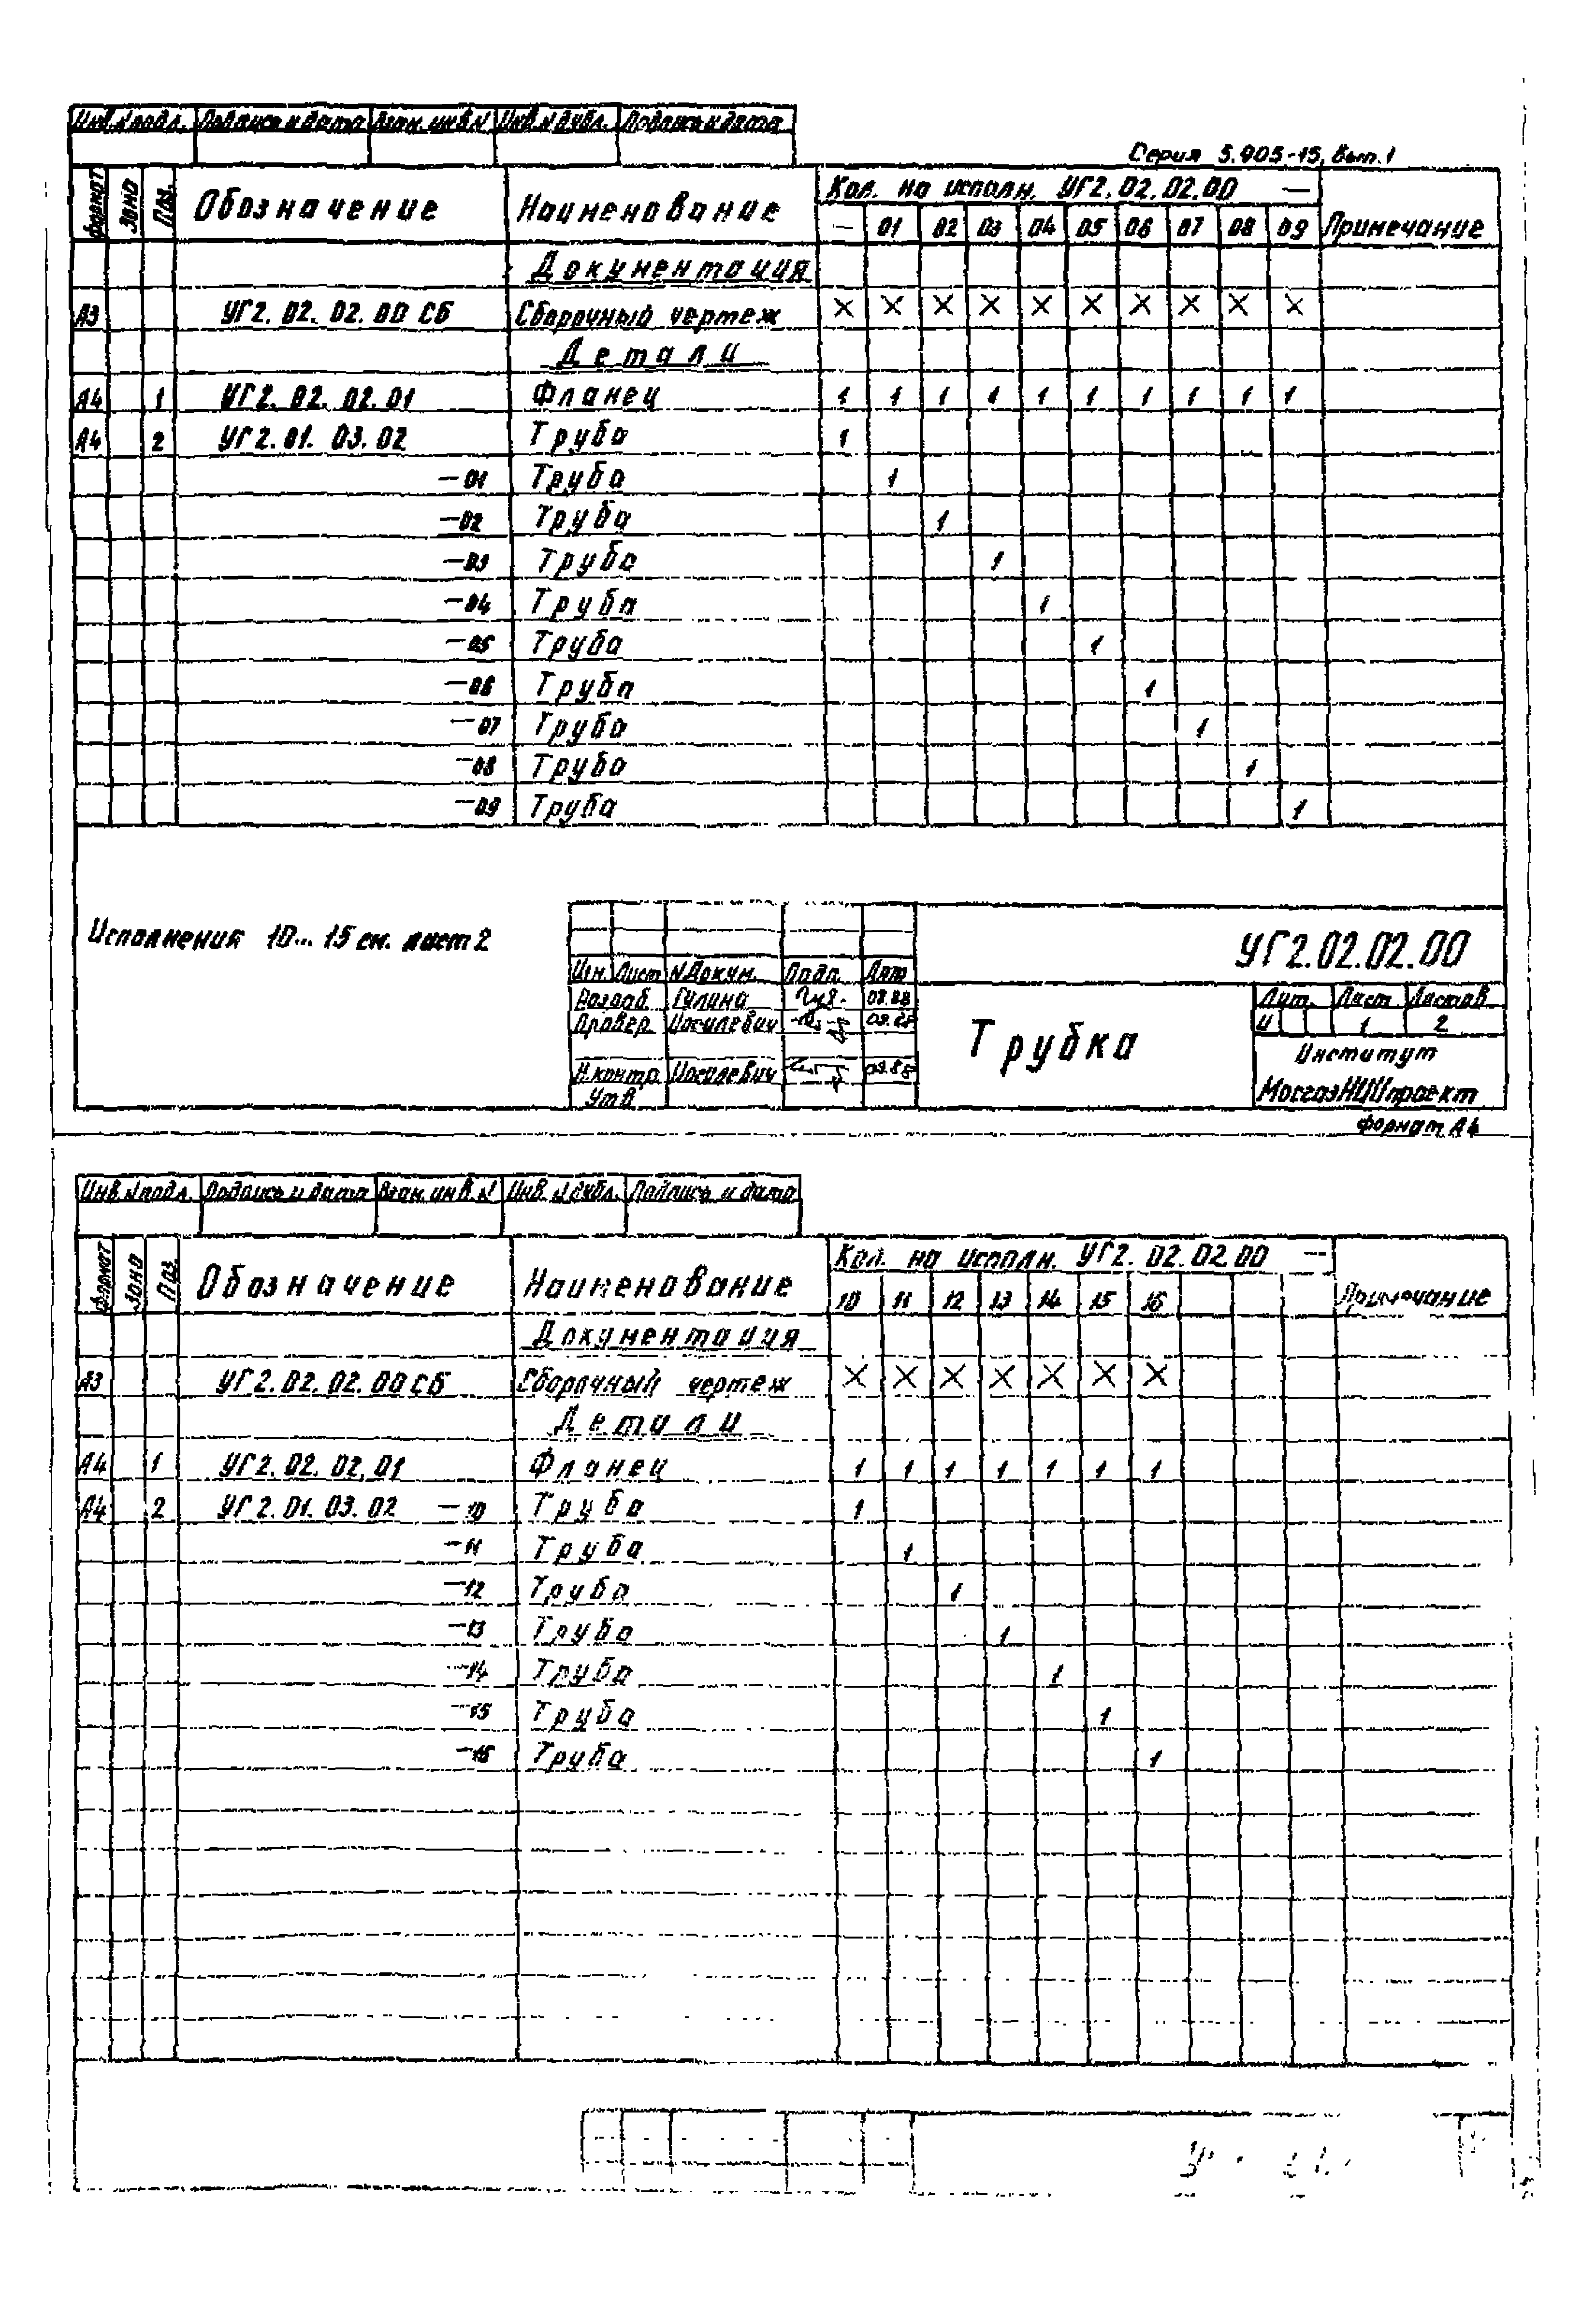 Инв.N подл. Подпись и дата Взам. инв.N Инв.N дубл. Подпись и дата
Серия 5.905-15, вып.1
формат Зона Поз. Обозначение Наименование Кол. на исполн. УГ2.02.02.00 — Примечание
— 01 02 03 04 05 06 07 08 09
Документация
А3 УГ2.02.02.00 СБ Сборочный чертеж X X X X X X X X X X
Детали
А4 1 УГ2.02.02.01 Фланец 1 1 1 1 1 1 1 1 1 1
А4 2 УГ2.01.03.02 Труба 1
—01 Труба 1
—02 Труба 1
—03 Труба 1
—04 Труба 1
—05 Труба 1
—06 Труба 1
—07 Труба 1
—08 Труба 1
—09 Труба 1
Исполнения 10... 15 см. лист 2
УГ2.02.02.00
Изм. Лист N Докум. Подп. Дат
Разраб. Гулина 09.88
Провер. Иосилевич 09.88
Н.контр. Иосилевич 09.88
Утв.
Трубка
Лит. Лист Листов
И 1 2
Институт
МосгазНИИпроект
формат А4
Инв.N подл. Подпись и дата Взам. инв.N Инв.N дубл. Подпись и дата
формат Зона Поз. Обозначение Наименование Кол. на исполн. УГ2.02.02.00 — Примечание
10 11 12 13 14 15 16
Документация
А3 УГ2.02.02.00 СБ Сборочный чертеж X X X X X X X
Детали
А4 1 УГ2.02.02.01 Фланец 1 1 1 1 1 1 1
А4 2 УГ2.01.03.02 —10 Труба 1
—11 Труба 1
—12 Труба 1
—13 Труба 1
—14 Труба 1
—15 Труба 1
—16 Труба 1